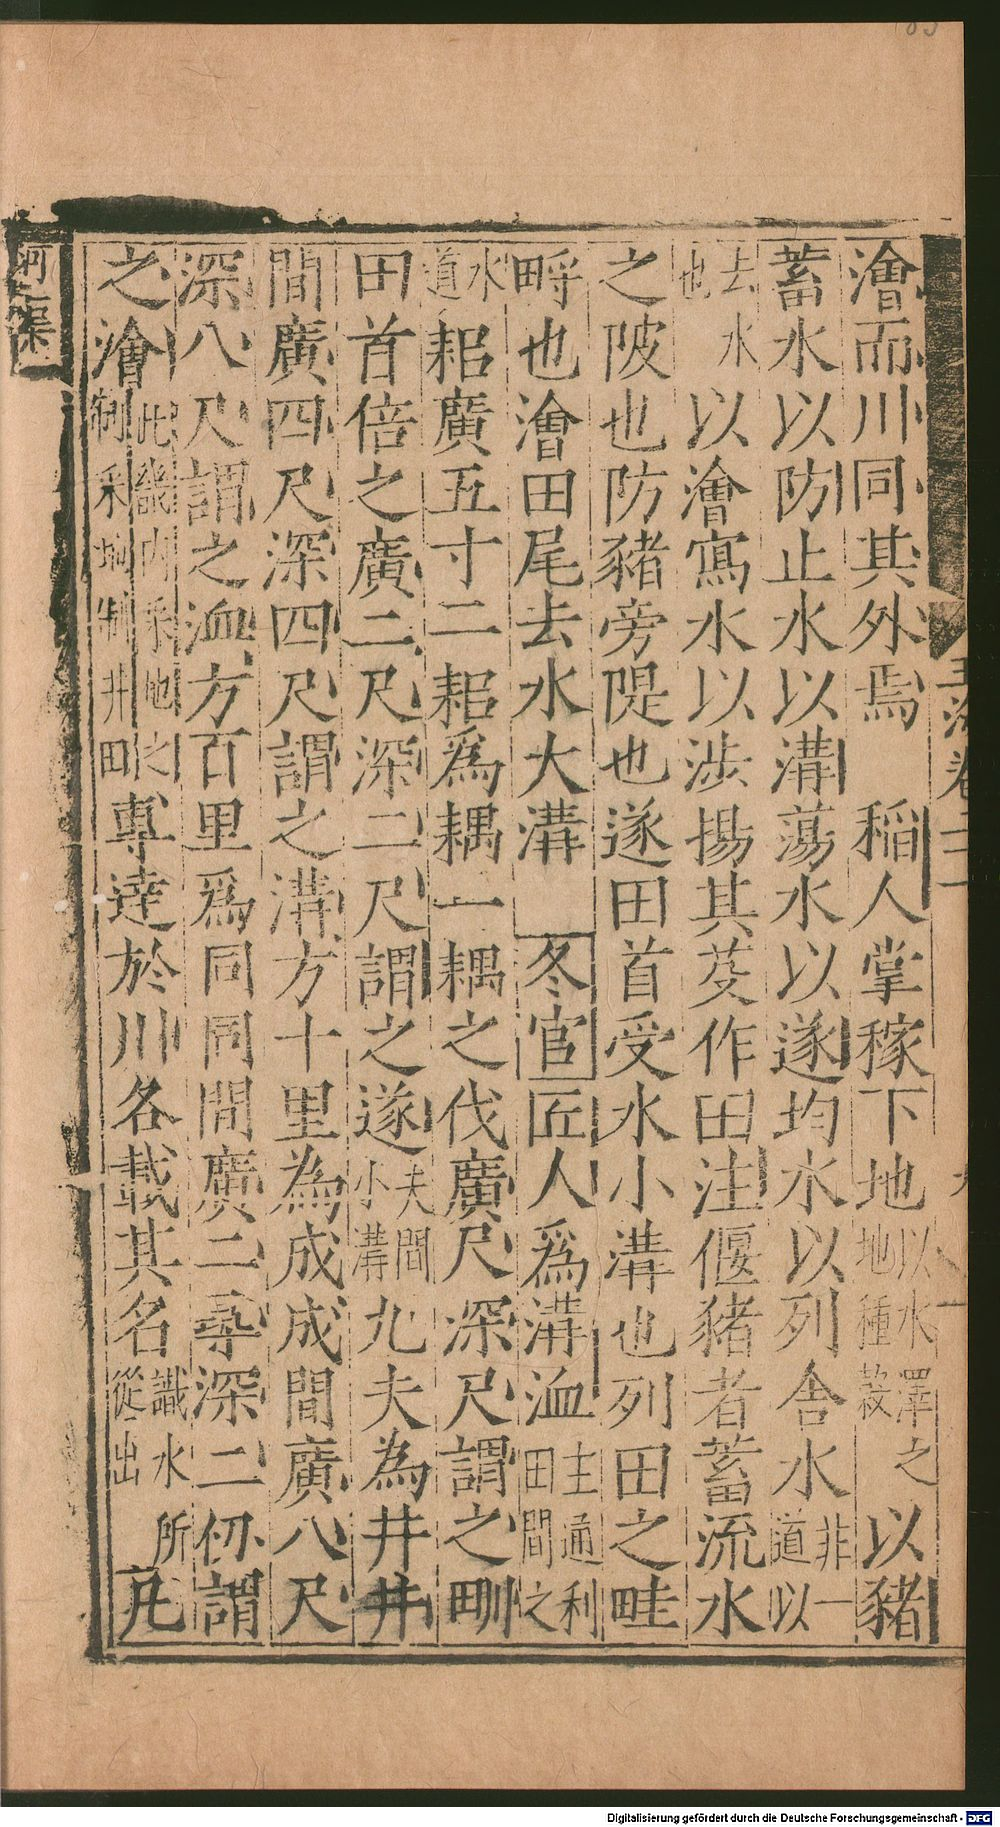 玉海卷二十一
澮而川同其外焉　稲人掌稼下地以水澤之地種菽以豬
蓄水以防止水以溝蕩水以遂均水以列舍水非一道以
去水也以澮寫水以涉揚其芟作田注偃豬者蓄流水
之陂也防豬旁隄也遂田首受水小溝也列田之畦
畤也澮田尾去水大溝　冬官匠人爲溝洫主通利田間之
水道耜廣五寸二耜爲耦一耦之伐廣尺深尺謂之甽
田首倍之廣二尺深二尺謂之遂夫間小溝九夫為井井
間廣四尺深四尺謂之溝方十里為成成間廣八尺
深八尺謂之洫方百里爲同同間廣二尋深二仞謂
之澮此畿内采地之制采地制井田專達於川各載其名識水所從出凡
河渠
Digitalisierung gefördert durch die Deutsche Forschungsgemeinschaft - DFG